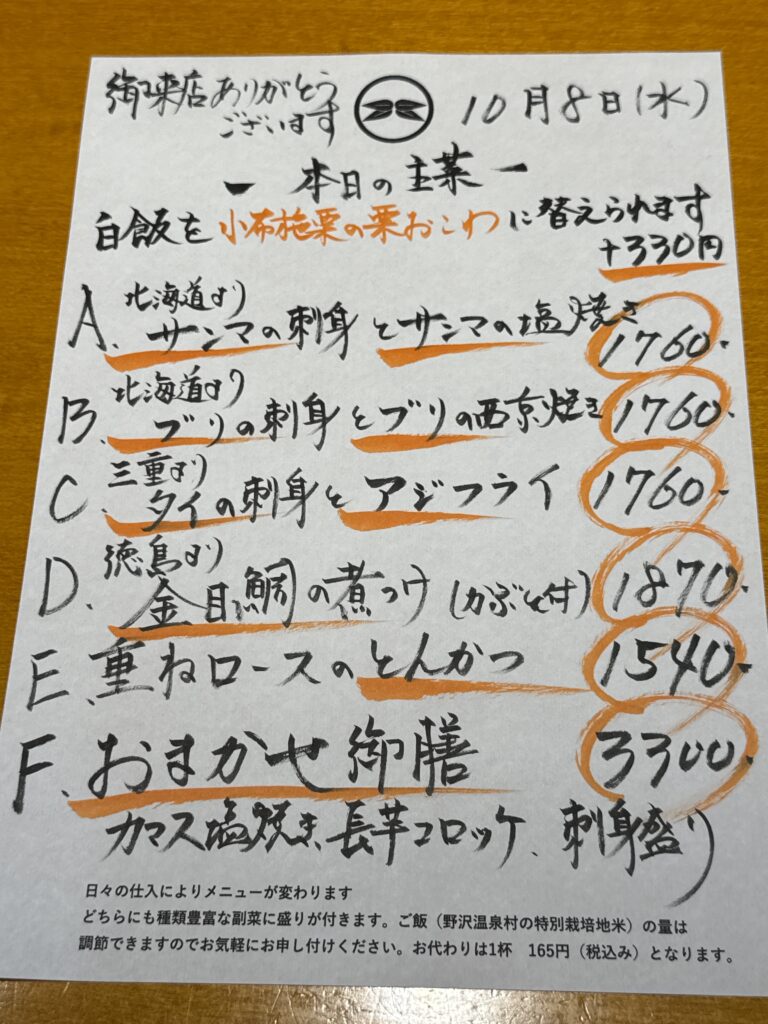 御来店ありがとう
ございます
10月8日(水)
ー 本日の主菜 ー
白飯を小布施栗の栗おこわに替えられます
+330円
北海道より
A、サンマの刺身とサンマの塩焼き 1760-
北海道より
B、ブリの刺身とブリの西京焼き 1760-
三重より
C、タイの刺身とアジフライ 1760-
徳島より
D、金目鯛の煮つけ(かぶと付) 1870-
E、重ねロースのとんかつ 1540-
F、おまかせ御膳 3300-
カマス塩焼き、長芋コロッケ、刺身盛り
日々の仕入によりメニューが変わります
どちらにも種類豊富な副菜に盛りが付きます。ご飯（野沢温泉村の特別栽培地米）の量は
調節できますのでお気軽にお申し付けください。お代わりは1杯　165円（税込み）となります。